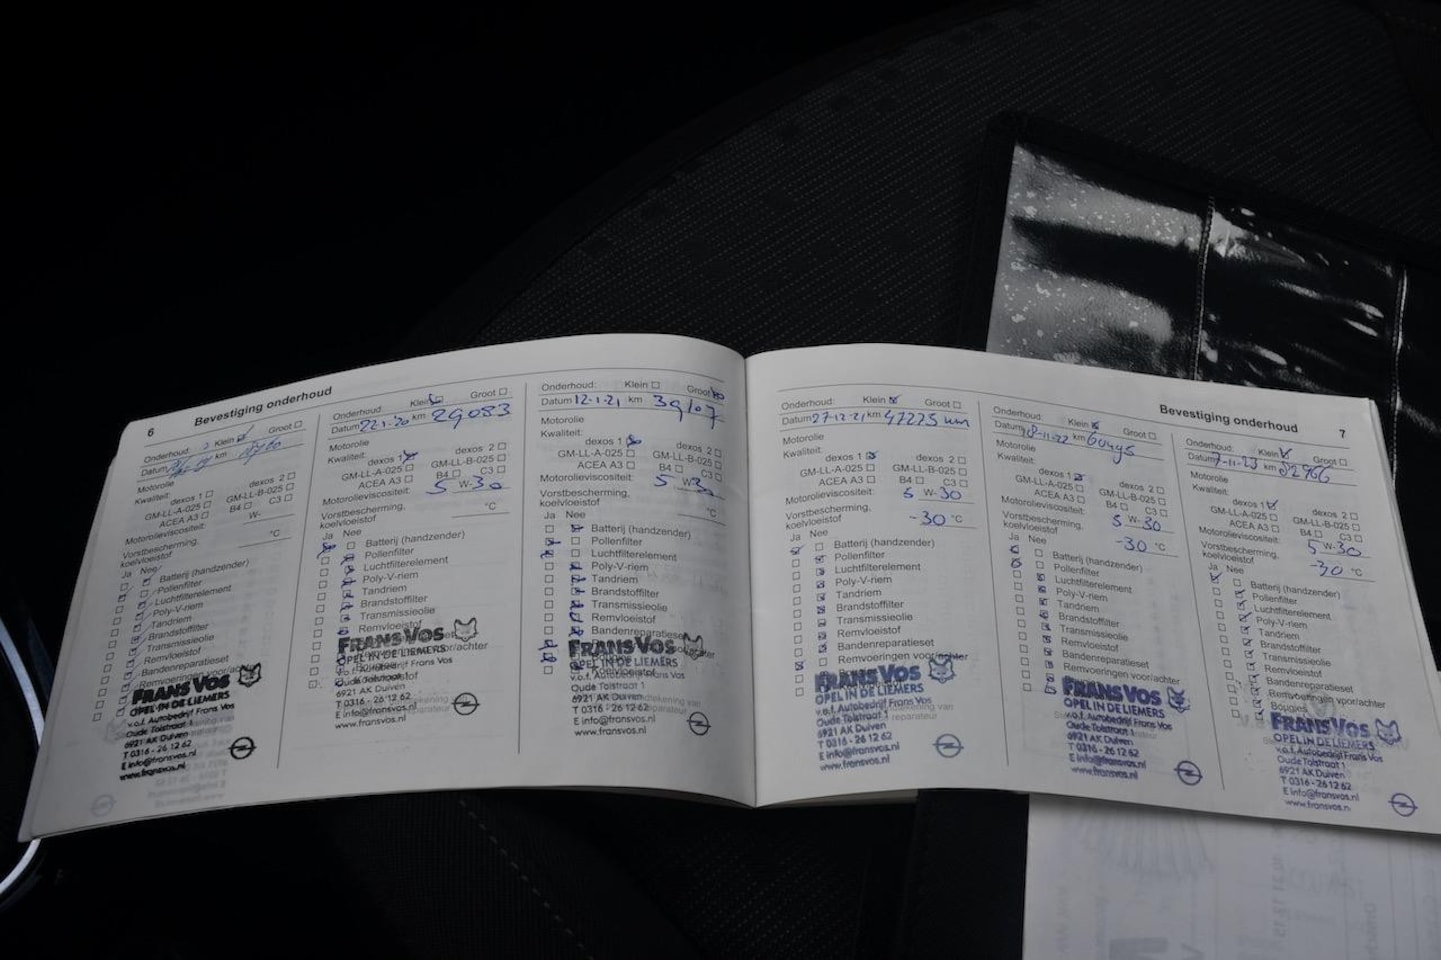 6 Bevestiging onderhoud
Onderhoud: Klein Groot
Datum km
Motorolie
Kwaliteit:
dexos 1 dexos 2
GM-LL-A-025 GM-LL-B-025
ACEA A3 B4 C3
Motorolieviscositeit: W-
Vorstbescherming, koelvloeistof °C
Ja Nee
Batterij (handzender)
Pollenfilter
Luchtfilterelement
Poly-V-riem
Tandriem
Brandstoffilter
Transmissieolie
Remvloeistof
Bandenreparatieset
Remvoeringen voor/achter
FRANS VOS
OPEL IN DE LIEMERS
v.o.f. Autobedrijf Frans Vos
Oude Tolstraat 1
6921 AK Duiven
T 0316 - 26 12 62
E info@fransvos.nl
www.fransvos.nl
Onderhoud: Klein Groot
Datum 22-1-20 km 29083
Motorolie
Kwaliteit:
dexos 1 dexos 2
GM-LL-A-025 GM-LL-B-025
ACEA A3 B4 C3
Motorolieviscositeit: 5 W-30
Vorstbescherming, koelvloeistof °C
Ja Nee
Batterij (handzender)
Pollenfilter
Luchtfilterelement
Poly-V-riem
Tandriem
Brandstoffilter
Transmissieolie
Remvloeistof
FRANS VOS
OPEL IN DE LIEMERS
v.o.f. Autobedrijf Frans Vos
Oude Tolstraat 1
6921 AK Duiven
T 0316 - 26 12 62
E info@fransvos.nl
www.fransvos.nl
Onderhoud: Klein Groot
Datum 12-1-21 km 39107
Motorolie
Kwaliteit:
dexos 1 dexos 2
GM-LL-A-025 GM-LL-B-025
ACEA A3 B4 C3
Motorolieviscositeit: 5 W-30
Vorstbescherming, koelvloeistof °C
Ja Nee
Batterij (handzender)
Pollenfilter
Luchtfilterelement
Poly-V-riem
Tandriem
Brandstoffilter
Transmissieolie
Remvloeistof
Bandenreparatieset
FRANS VOS
OPEL IN DE LIEMERS
v.o.f. Autobedrijf Frans Vos
Oude Tolstraat 1
6921 AK Duiven
T 0316 - 26 12 62
E info@fransvos.nl
www.fransvos.nl
Bevestiging onderhoud 7
Onderhoud: Klein Groot
Datum 27-12-21 km 47225 km
Motorolie
Kwaliteit:
dexos 1 dexos 2
GM-LL-A-025 GM-LL-B-025
ACEA A3 B4 C3
Motorolieviscositeit: 5 W-30
Vorstbescherming, koelvloeistof -30 °C
Ja Nee
Batterij (handzender)
Pollenfilter
Luchtfilterelement
Poly-V-riem
Tandriem
Brandstoffilter
Transmissieolie
Remvloeistof
Bandenreparatieset
Remvoeringen voor/achter
FRANS VOS
OPEL IN DE LIEMERS
v.o.f. Autobedrijf Frans Vos
Oude Tolstraat 1
6921 AK Duiven
T 0316 - 26 12 62
E info@fransvos.nl
www.fransvos.nl
Onderhoud: Klein Groot
Datum km
Motorolie
Kwaliteit:
dexos 1 dexos 2
GM-LL-A-025 GM-LL-B-025
ACEA A3 B4 C3
Motorolieviscositeit: 5 W-30
Vorstbescherming, koelvloeistof -30 °C
Ja Nee
Batterij (handzender)
Pollenfilter
Luchtfilterelement
Poly-V-riem
Tandriem
Brandstoffilter
Transmissieolie
Remvloeistof
Bandenreparatieset
Remvloeistof
Remvoeringen voor/achter
FRANS VOS
OPEL IN DE LIEMERS
v.o.f. Autobedrijf Frans Vos
Oude Tolstraat 1
6921 AK Duiven
T 0316 - 26 12 62
E info@fransvos.nl
www.fransvos.nl
Onderhoud: Klein Groot
Datum 7-11-23 km
Motorolie
Kwaliteit:
dexos 1 dexos 2
GM-LL-A-025 GM-LL-B-025
ACEA A3 B4 C3
Motorolieviscositeit: 5 W-30
Vorstbescherming, koelvloeistof -30 °C
Ja Nee
Batterij (handzender)
Pollenfilter
Luchtfilterelement
Poly-V-riem
Tandriem
Brandstoffilter
Transmissieolie
Remvloeistof
Bandenreparatieset
Remvoeringen voor/achter
Bougies
FRANS VOS
OPEL IN DE LIEMERS
v.o.f. Autobedrijf Frans Vos
Oude Tolstraat 1
6921 AK Duiven
T 0316 - 26 12 62
E info@fransvos.nl
www.fransvos.nl